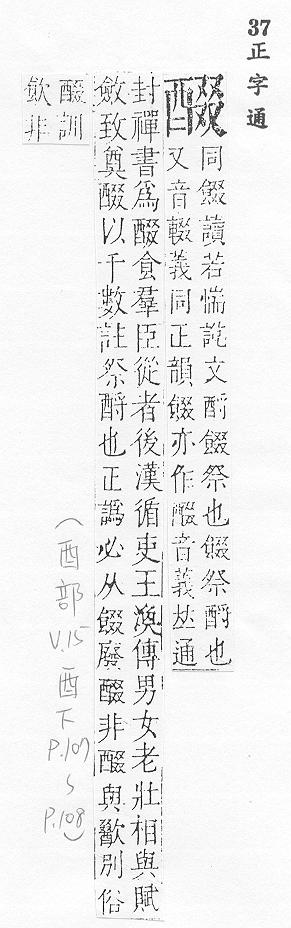 37 正字通
醊
同餟讀若惴說文酹餟祭也餟祭酹也
又音輟義同正韻餟亦作醊音義𠀤通
封禪書為醊食羣臣從者後漢循吏王渙傳男女老壯相與賦
斂致奠醊以千數註祭酹也正譌必从餟廢醊非醊與歠別俗
醊訓
非
(酉部 V.15 酉下 P.107 ~ P.108)